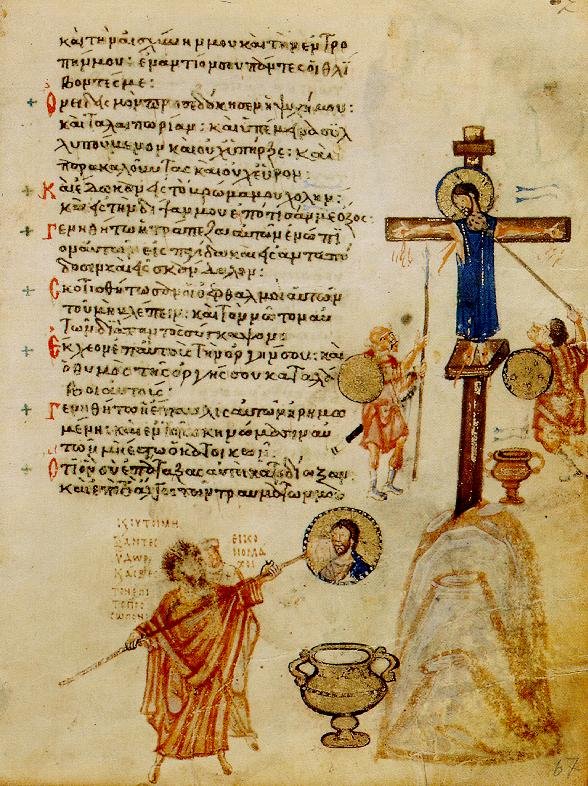 καὶ τὴν αἰσχύνην μου καὶ τὴν ἐντρο
πήν μου: ἐναντίον σου πάντες οἱ θλί
βοντές με:
Ὀνειδισμὸν προσεδόκησεν ἡ ψυχή μου:
καὶ ταλαιπωρίαν: καὶ ὑπέμεινα συλ
λυπούμενον καὶ οὐχ ὑπῆρξε: καὶ
παρακαλοῦντας καὶ οὐχ εὗρον:
Καὶ ἔδωκαν εἰς τὸ βρῶμα μου χολήν:
καὶ εἰς τὴν δίψαν μου ἐπότισάν με ὄξος:
Γενηθήτω ἡ τράπεζα αὐτῶν ἐνώπι
ον αὐτῶν εἰς παγίδα καὶ εἰς ἀνταπό
δοσιν καὶ εἰς σκάνδαλον:
Σκοτισθήτωσαν οἱ ὀφθαλμοὶ αὐτῶν
τοῦ μὴ βλέπειν: καὶ τὸν νῶτον αὐ
τῶν διὰ παντὸς σύγκαμψον:
Ἔκχεον ἐπ αὐτοὺς τὴν ὀργήν σου: καὶ
ὁ θυμὸς τῆς ὀργῆς σου καταλά
βοι αὐτούς:
Γενηθήτω ἡ ἔπαυλις αὐτῶν ἠρημω
μένη: καὶ ἐν τοῖς σκηνώμασιν αὐ
τῶν μὴ ἔστω ὁ κατοικῶν:
Ὅτι ὃν σὺ ἐπάταξας αὐτοὶ κατεδίωξαν
καὶ ἐπὶ τὸ ἄλγος τῶν τραυμάτων μου
ΕΙΚΟ
ΝΟΜΑ
ΧΟΙ
ΥΔΩΡ
67